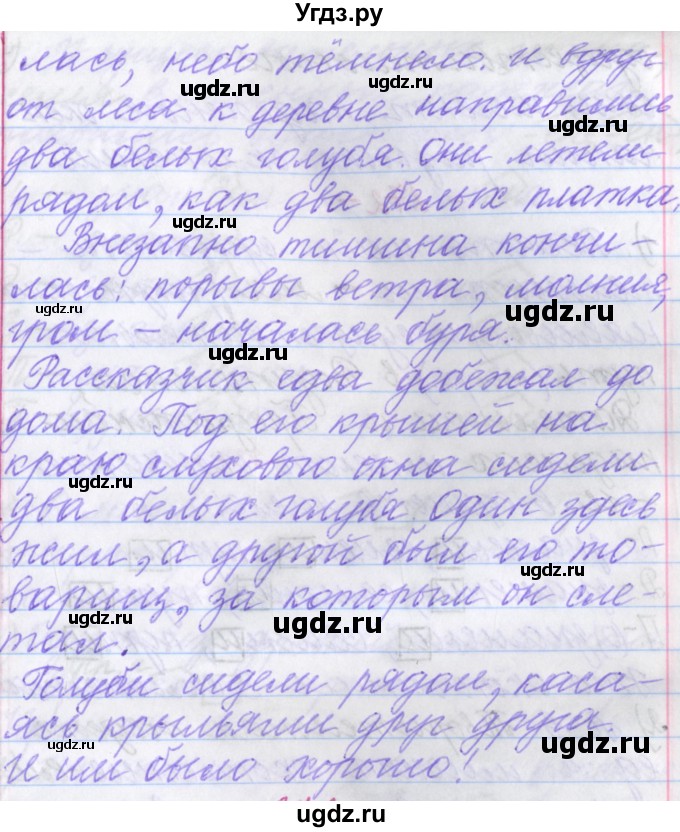 Угдз.ру
лась, небо тёмнело. и вдруг
ugdz.ru
ugdz.ru
от леса к деревне направились
ugdz.ru
два белых голуба. Они летели
рядом, как два белых платка.
ugdz.ru
Внезапно тишина кончи-
лась: порывы ветра, молния,
ugdz.ru
ugdz.ru
гром – началась буря.
ugdz.ru
Рассказчик едва добежал до
ugdz.ru
дома. Под его крышей на
краю слухового окна сидели
ugdz.ru
ugdz.ru
два белых голуба. Один здесь
жил, а другой был его то-
ugdz.ru
варищ, за которым он сле-
ugdz.ru
тал.
Голуби сидели рядом, каса-
ясь крыльями друг друга.
ugdz.ru
ugdz.ru
И им было хорошо!
ugdz.ru